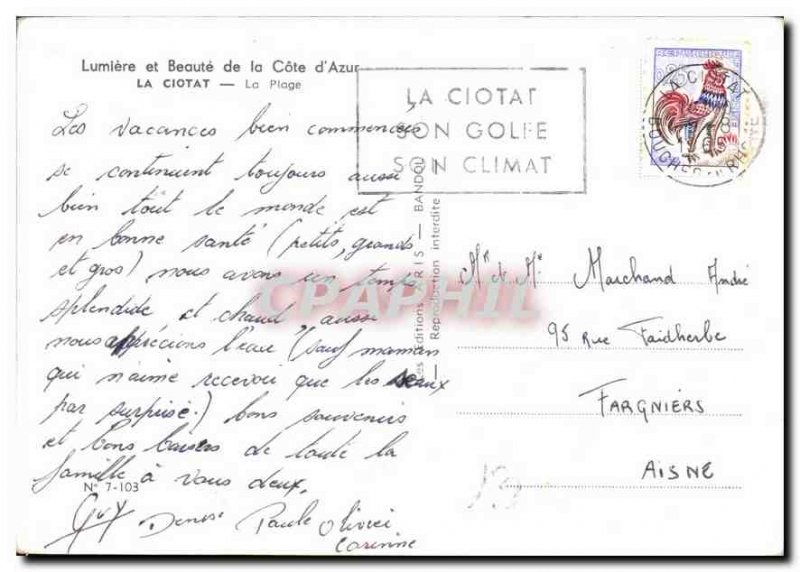 Lumière et Beauté de la Côte d'Azur
LA CIOTAT — La Plage
LA CIOTAT
SON GOLFE
SON CLIMAT
LA CIOTAT
BOUCHES DU RHONE
Les vacances bien commencées
se continuent toujours aussi
bien tout le monde est
en bonne santé (petits, grands
et gros) nous avons un temps
splendide et chaud, aussi
nous apprécions l'eau (sauf maman
qui n'aime recevoir que les seaux
par surprise.) bons souvenirs
et bons baisers de toute la
famille à vous deux.
Guy Denise Paule Olivier
Corinne
N° 7-103
Les éditions PARIS — BANDOL
— Reproduction interdite
CPAPHIL
Mr et Me Marchand André
95 Rue Faidherbe
FARGNIERS
AISNE